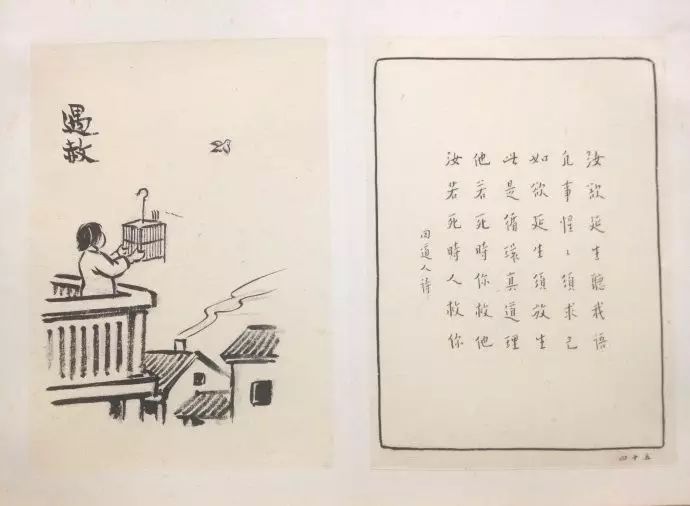 遇赦
汝欲延生聽我語
凡事惺〻須求己
如欲延生須放生
此是循環真道理
他若死時你救他
汝若死時人救你
回道人詩
四十五